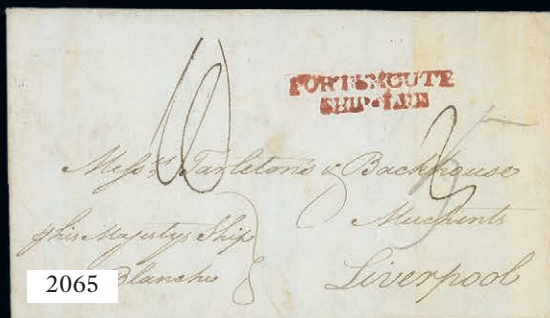 PORTSMOUTH
SHIP-LRE
Mess.rs Tarleton's & Backhouse
Merchants
Liverpool
p his Majestys Ship
Blanche
2065